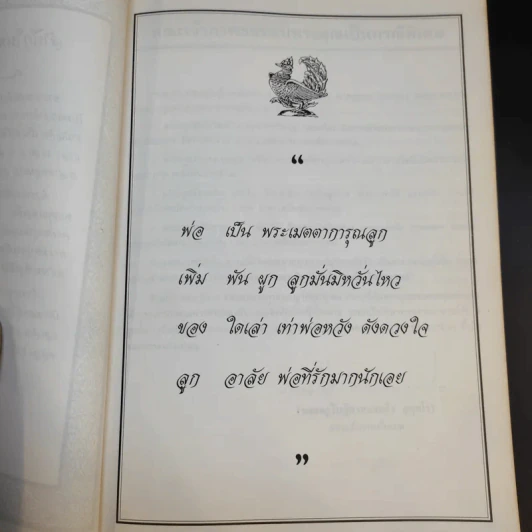 “
พ่อ เป็น พระเมตตาการุณลูก
เพิ่ม พัน ผูก ลูกมั่นมิหวั่นไหว
ของ ใดเล่า เท่าพ่อหวัง ดังดวงใจ
ลูก อาลัย พ่อที่รักมากนักเอย
”